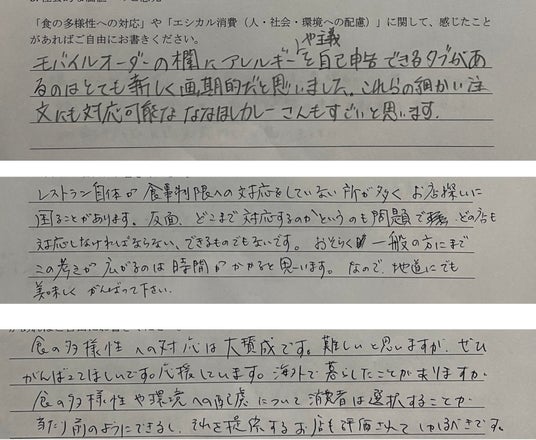 「食の多様性への対応」や「エシカル消費（人・社会・環境への配慮）」に関して、感じたこと
があればご自由にお書きください。
モバイルオーダーの欄にアレルギーや主義を自己申告できるタブがあ
るのはとても新しく画期的だと思いました。これらの細かい注
文にも対応可能なななほしカレーさんもすごいと思います。
レストラン自体が食事制限への対応をしていない所が多くお店探しに
困ることがあります。反面、どこまで対応するのかというのも問題でどの店も
対応しなければならない、できるものでもないです。おそらく一般の方にまで
この考えが広がるのは時間がかかると思います。なので、地道にでも
美味しくがんばって下さい。
食の多様性への対応は大賛成です。難しいと思いますが、ぜひ
がんばってほしいです。応援しています。海外で暮らしたことがありますが、
食の多様性や環境への配慮について消費者は選択することが
当たり前のようにできるし、それを提供するお店も評価されてしかるべきです。